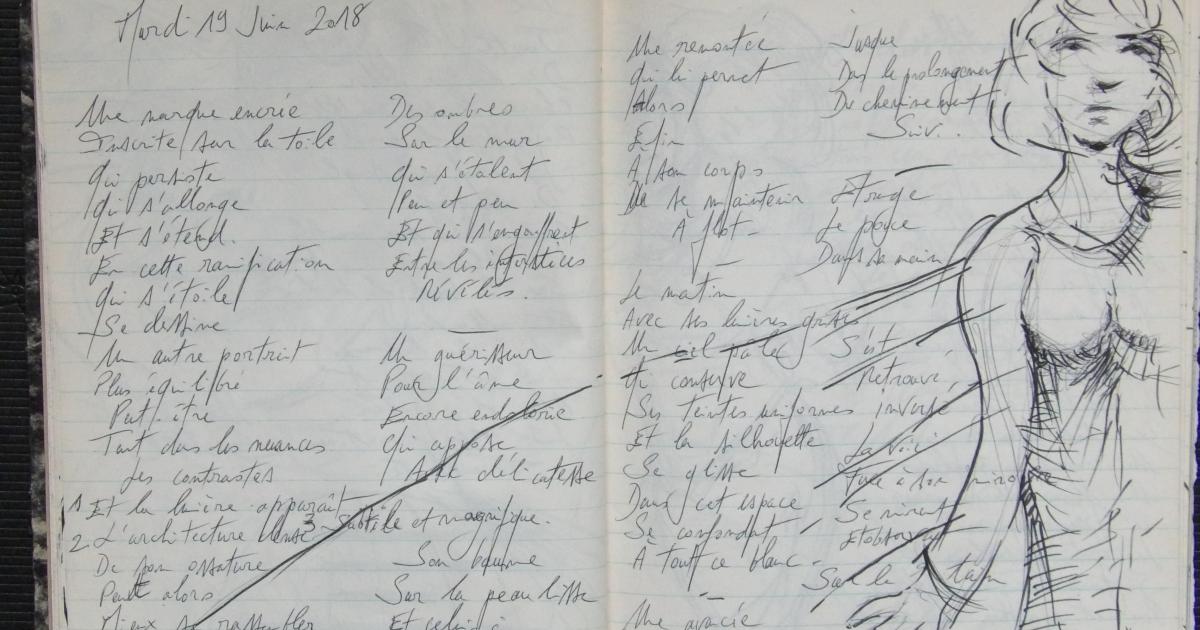 Mardi 19 Juin 2018
Une marque encrée
Inscrite sur la toile
Qui persiste
Qui s'allonge
Et s'étend.
En cette ramification
Qui s'étoile
Se dessine
Un autre portrait
Plus équilibré
Peut-être
Tant dans les nuances
Les contrastes
1 Et la lumière apparaît
2. L'architecture dense
De son ossature
Peut alors
Mieux se rassembler
Des ombres
Sur le mur
Qui s'étalent
Peu et peu
Et qui s'engouffrent
Entre les interstices
Révélés.
Un guérisseur
Pour l'âme
Encore endolorie
Qui appose
Avec délicatesse
3 Subtile et magnifique.
Son baume
Sur la peau lisse
Et celui-ci
Une remontée
Qui lui permet
Alors
Enfin
A son corps
De se maintenir
À flot.
Le matin
Avec ses lumières grises
Un ciel pâle
Qui conserve
Ses teintes uniformes
Et la silhouette
Se glisse
Dans cet espace
Se confondant
À tout ce blanc.
Une avancée
Jusque
Dans le prolongement
Du cheminement
Suivi.
Étrange
Le pouce
Dans sa main
S'est
Retrouvé,
inversé
La voici
Fixe à son miroir
Se mirant
Et observant
Sur le tain